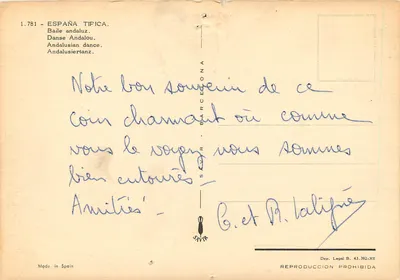 1.781 - ESPAÑA TIPICA.
Baile andaluz.
Danse Andalou.
Andalusian dance.
Andalusiertanz.
BARCELONA
Notre bon souvenir de ce
coin charmant où comme
vous le voyez nous sommes
bien entourés -
Amitiés -
G. et R.
Made in Spain
Dep. Legal B.
REPRODUCCION PROHIBIDA